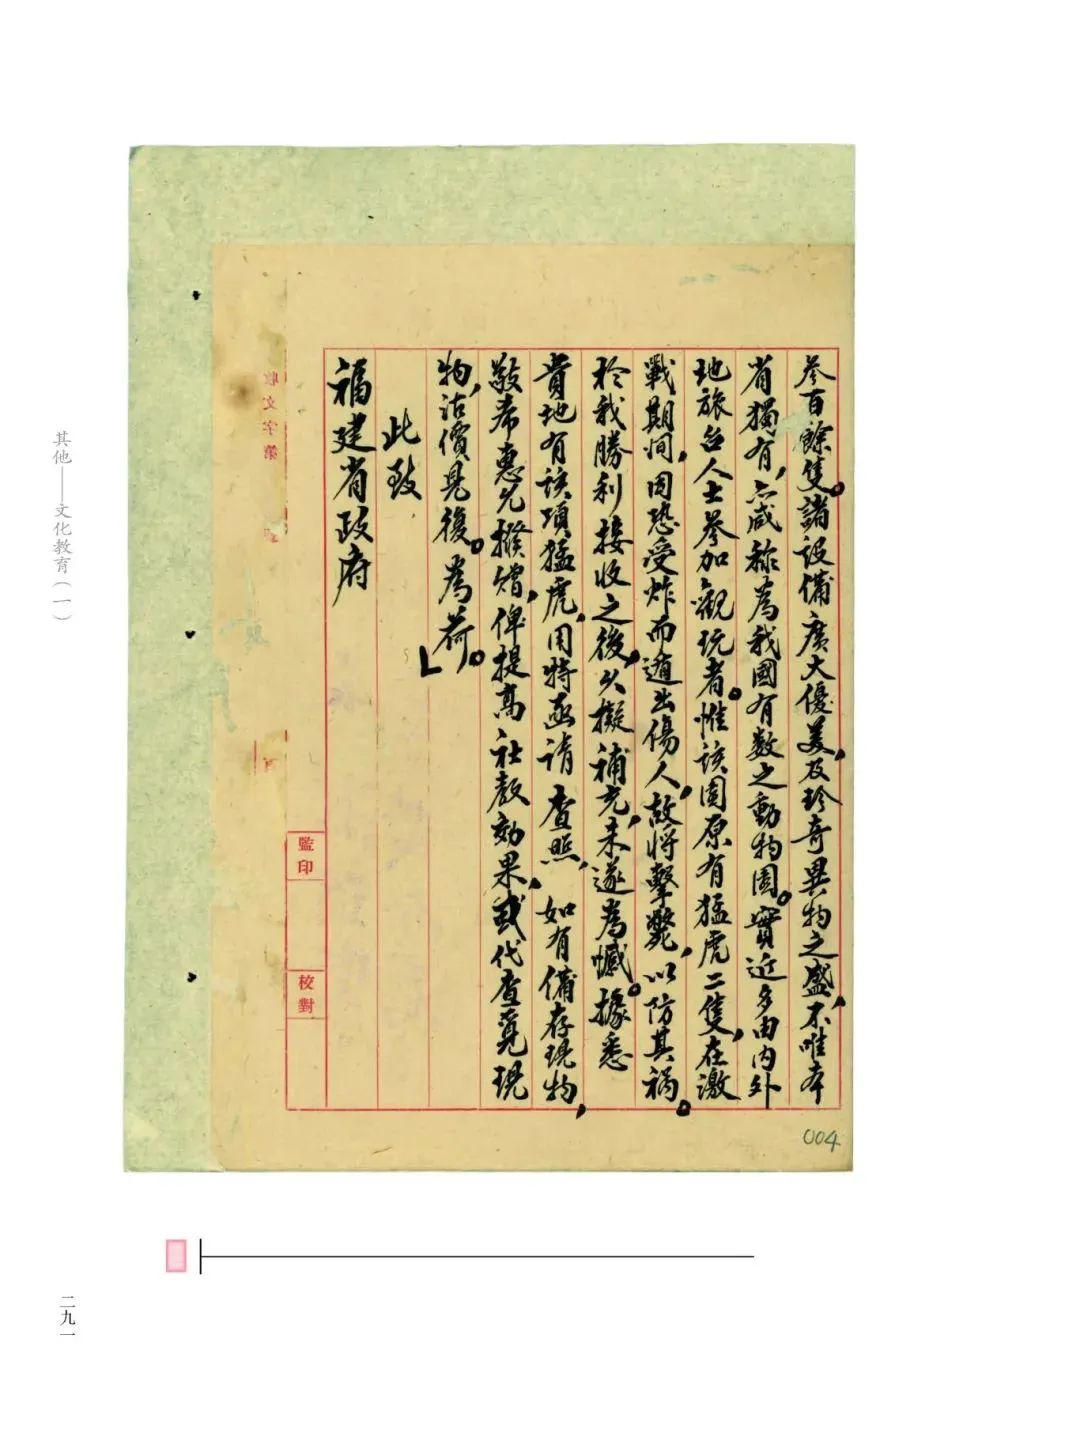 叁百餘隻。諸設備廣大優美，及珍奇異物之盛，不唯本
省獨有，亦咸称為我國有数之動物園。實近多由内外
地旅台人士參加觀玩者。惟該園原有猛虎二隻，在激
戰期间，因恐受炸而遁出傷人，故將擊斃，以防其祸。
於我勝利接收之後，久擬補充，未遂為憾。據悉
貴地有該項猛虎，用特函請 查照，如有備存現物，
敬希惠允撥贈，俾提高社教効果，或代查覓現
物，估價見復。為荷。」
此致
福建省政府
監印
校對
收文字第
004
其他——文化教育（一）
二九一